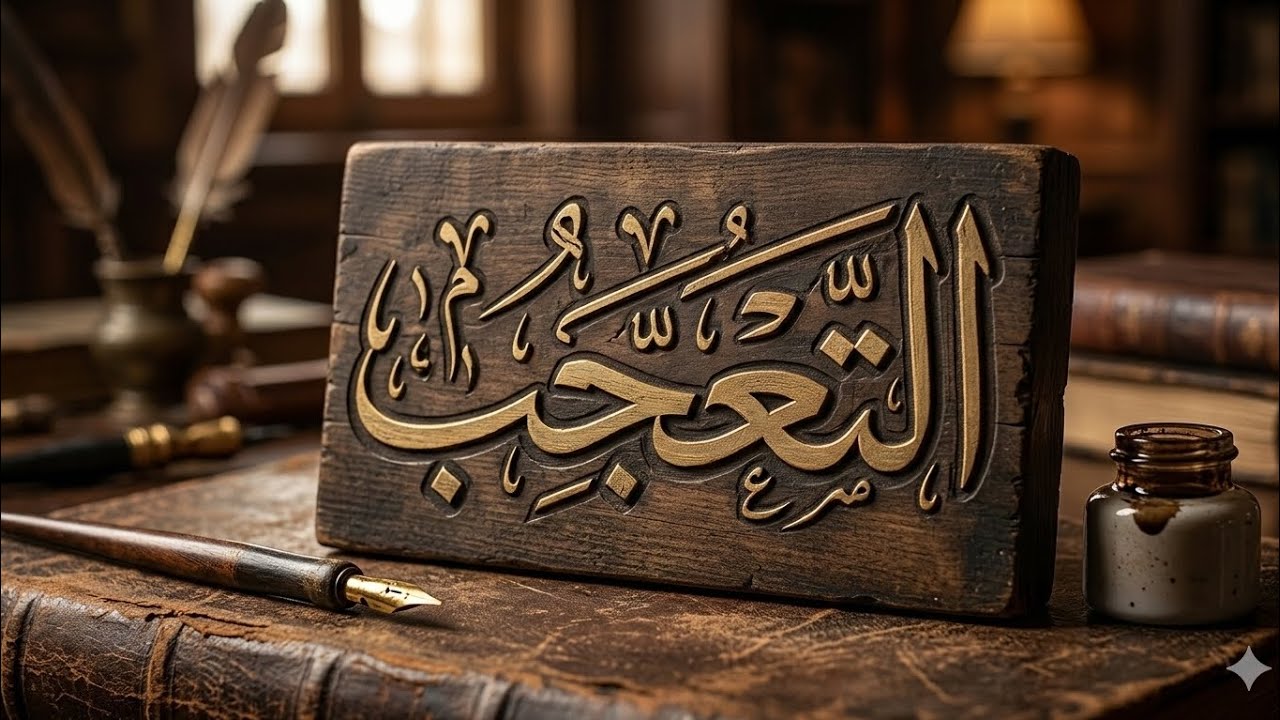 التَّعَجُّب